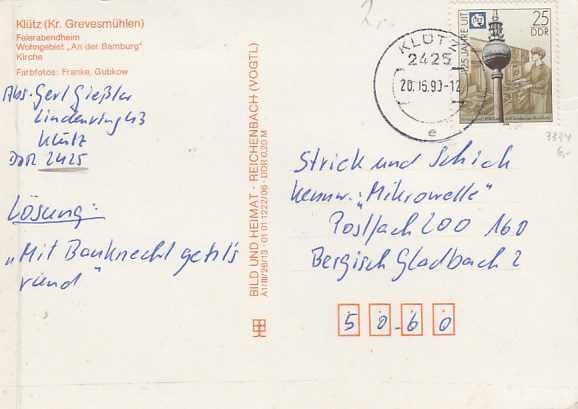 Klütz (Kr. Grevesmühlen)
Feierabendheim
Wohngebiet „An der Bamburg"
Kirche
Farbfotos: Franke, Gubkow
Abs. Gerl Gießler
Lindenring 43
Klütz
DDR 2425
Lösung:
„Mit Bauknecht geht's
rund"
BILD UND HEIMAT · REICHENBACH (VOGTL)
A1/III/26/13 · 01 01 1222/06 · DDR 0,20 M
KLÜTZ
2425
20.15.90-12
e
125 JAHRE UIT
25
DDR
3334
Strick und Schick
Kennw. „Mikrowelle"
Postfach 200 160
Bergisch Gladbach 2
5060